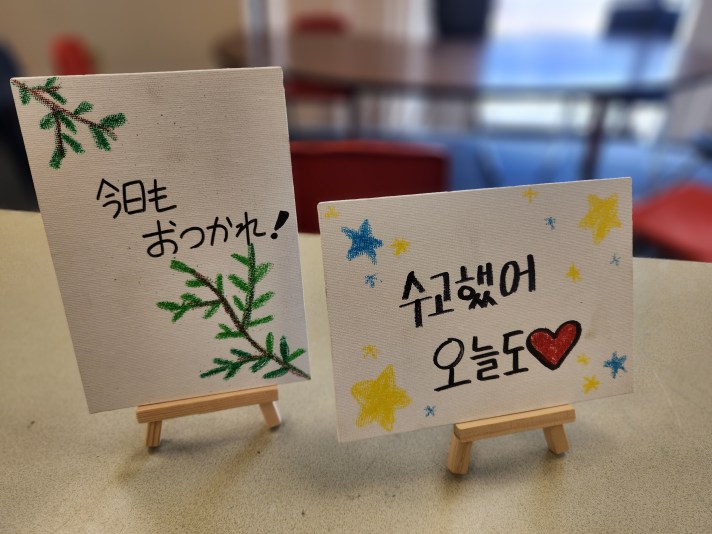 今日も
おつかれ!
수고했어
오늘도